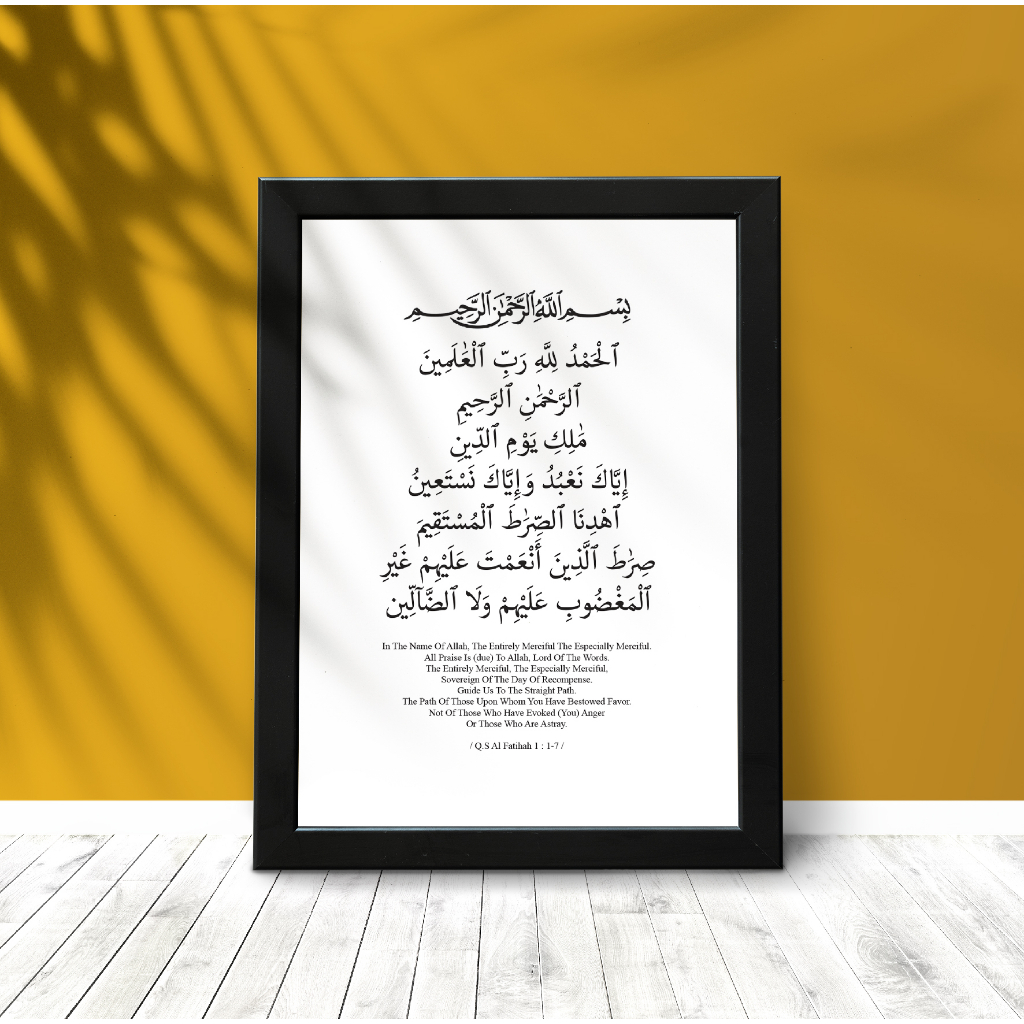 بِسْمِ ٱللَّهِ ٱلرَّحْمَٰنِ ٱلرَّحِيمِ
ٱلْحَمْدُ لِلَّهِ رَبِّ ٱلْعَٰلَمِينَ
ٱلرَّحْمَٰنِ ٱلرَّحِيمِ
مَٰلِكِ يَوْمِ ٱلدِّينِ
إِيَّاكَ نَعْبُدُ وَإِيَّاكَ نَسْتَعِينُ
ٱهْدِنَا ٱلصِّرَٰطَ ٱلْمُسْتَقِيمَ
صِرَٰطَ ٱلَّذِينَ أَنْعَمْتَ عَلَيْهِمْ غَيْرِ
ٱلْمَغْضُوبِ عَلَيْهِمْ وَلَا ٱلضَّآلِّين
In The Name Of Allah, The Entirely Merciful The Especially Merciful.
All Praise Is (due) To Allah, Lord Of The Words.
The Entirely Merciful, The Especially Merciful,
Sovereign Of The Day Of Recompense.
Guide Us To The Straight Path.
The Path Of Those Upon Whom You Have Bestowed Favor.
Not Of Those Who Have Evoked (You) Anger
Or Those Who Are Astray.
/ Q.S Al Fatihah 1 : 1-7 /